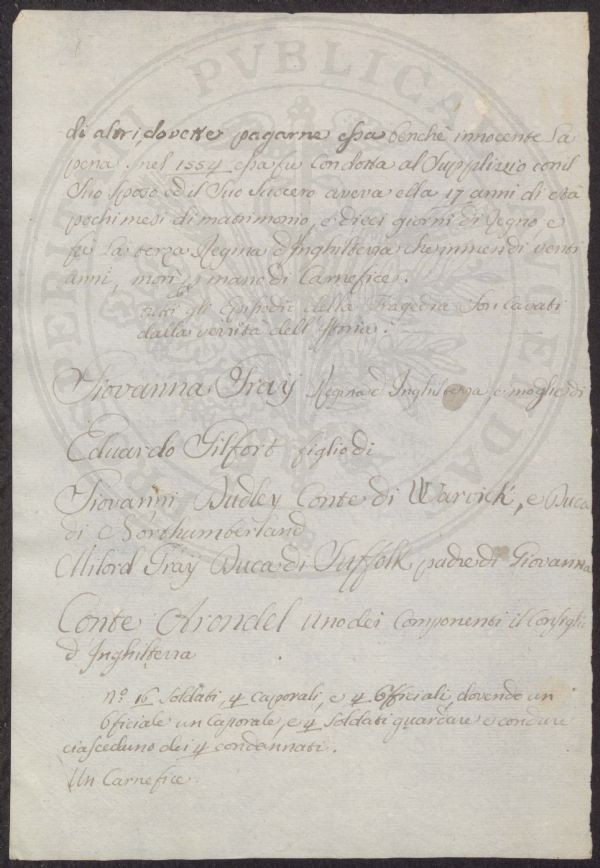 di altri, dovette pagarne essa benche innocente la
pena. nel 1554 essa fu Condotta al Supplizio con il
Suo Sposo ed il Suo Suocero aveva ella 17 anni di età
pochi mesi di matrimonio, e dieci giorni di Regno, e
fù la terza Regina d'Inghilterra che in men di venti
anni, morì p mano di Carnefice.
tutti gli Episodii della Tragedia Son Cavati
dalla verità dell'Istoria.
Giovanna Gray Regina d'Inghilterra e moglie di
Eduardo Gilfort figlio di
Giovanni Dudley Conte di Warvick, e Duca
di Northumberland
Milord Gray Duca di Suffolk padre di Giovanna
Conte Arondel uno dei Componenti il Consiglio
d'Inghilterra
n.º 16 Soldati, 4 Caporali, e 4 Officiali, dovendo un
Officiale un Caporale, e 4 Soldati guardare e condure
ciasceduno dei 4 condannati.
Un Carnefice.